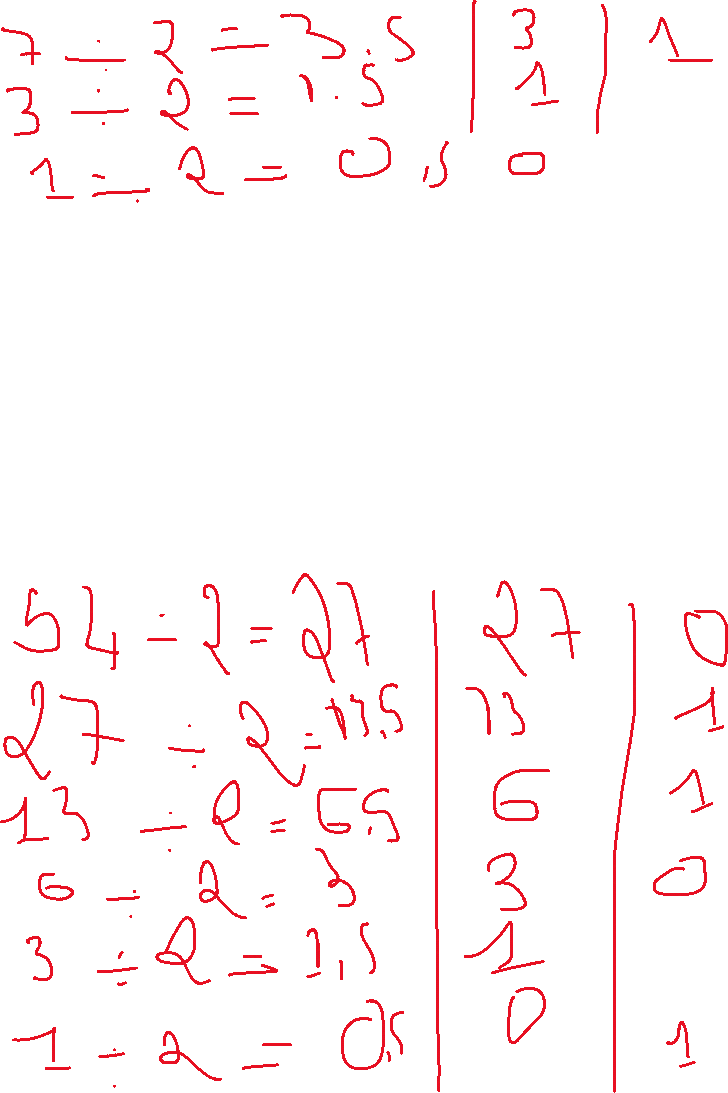 7 ÷ 2 = 3.5 | 3 | 1
3 ÷ 2 = 1.5 | 1 |
1 ÷ 2 = 0,5 0
54 ÷ 2 = 27 | 27 | 0
27 ÷ 2 = 13,5 | 13 | 1
13 ÷ 2 = 6,5 | 6 | 1
6 ÷ 2 = 3 | 3 | 0
3 ÷ 2 = 1,5 | 1 |
1 ÷ 2 = 0,5 | 0 | 1